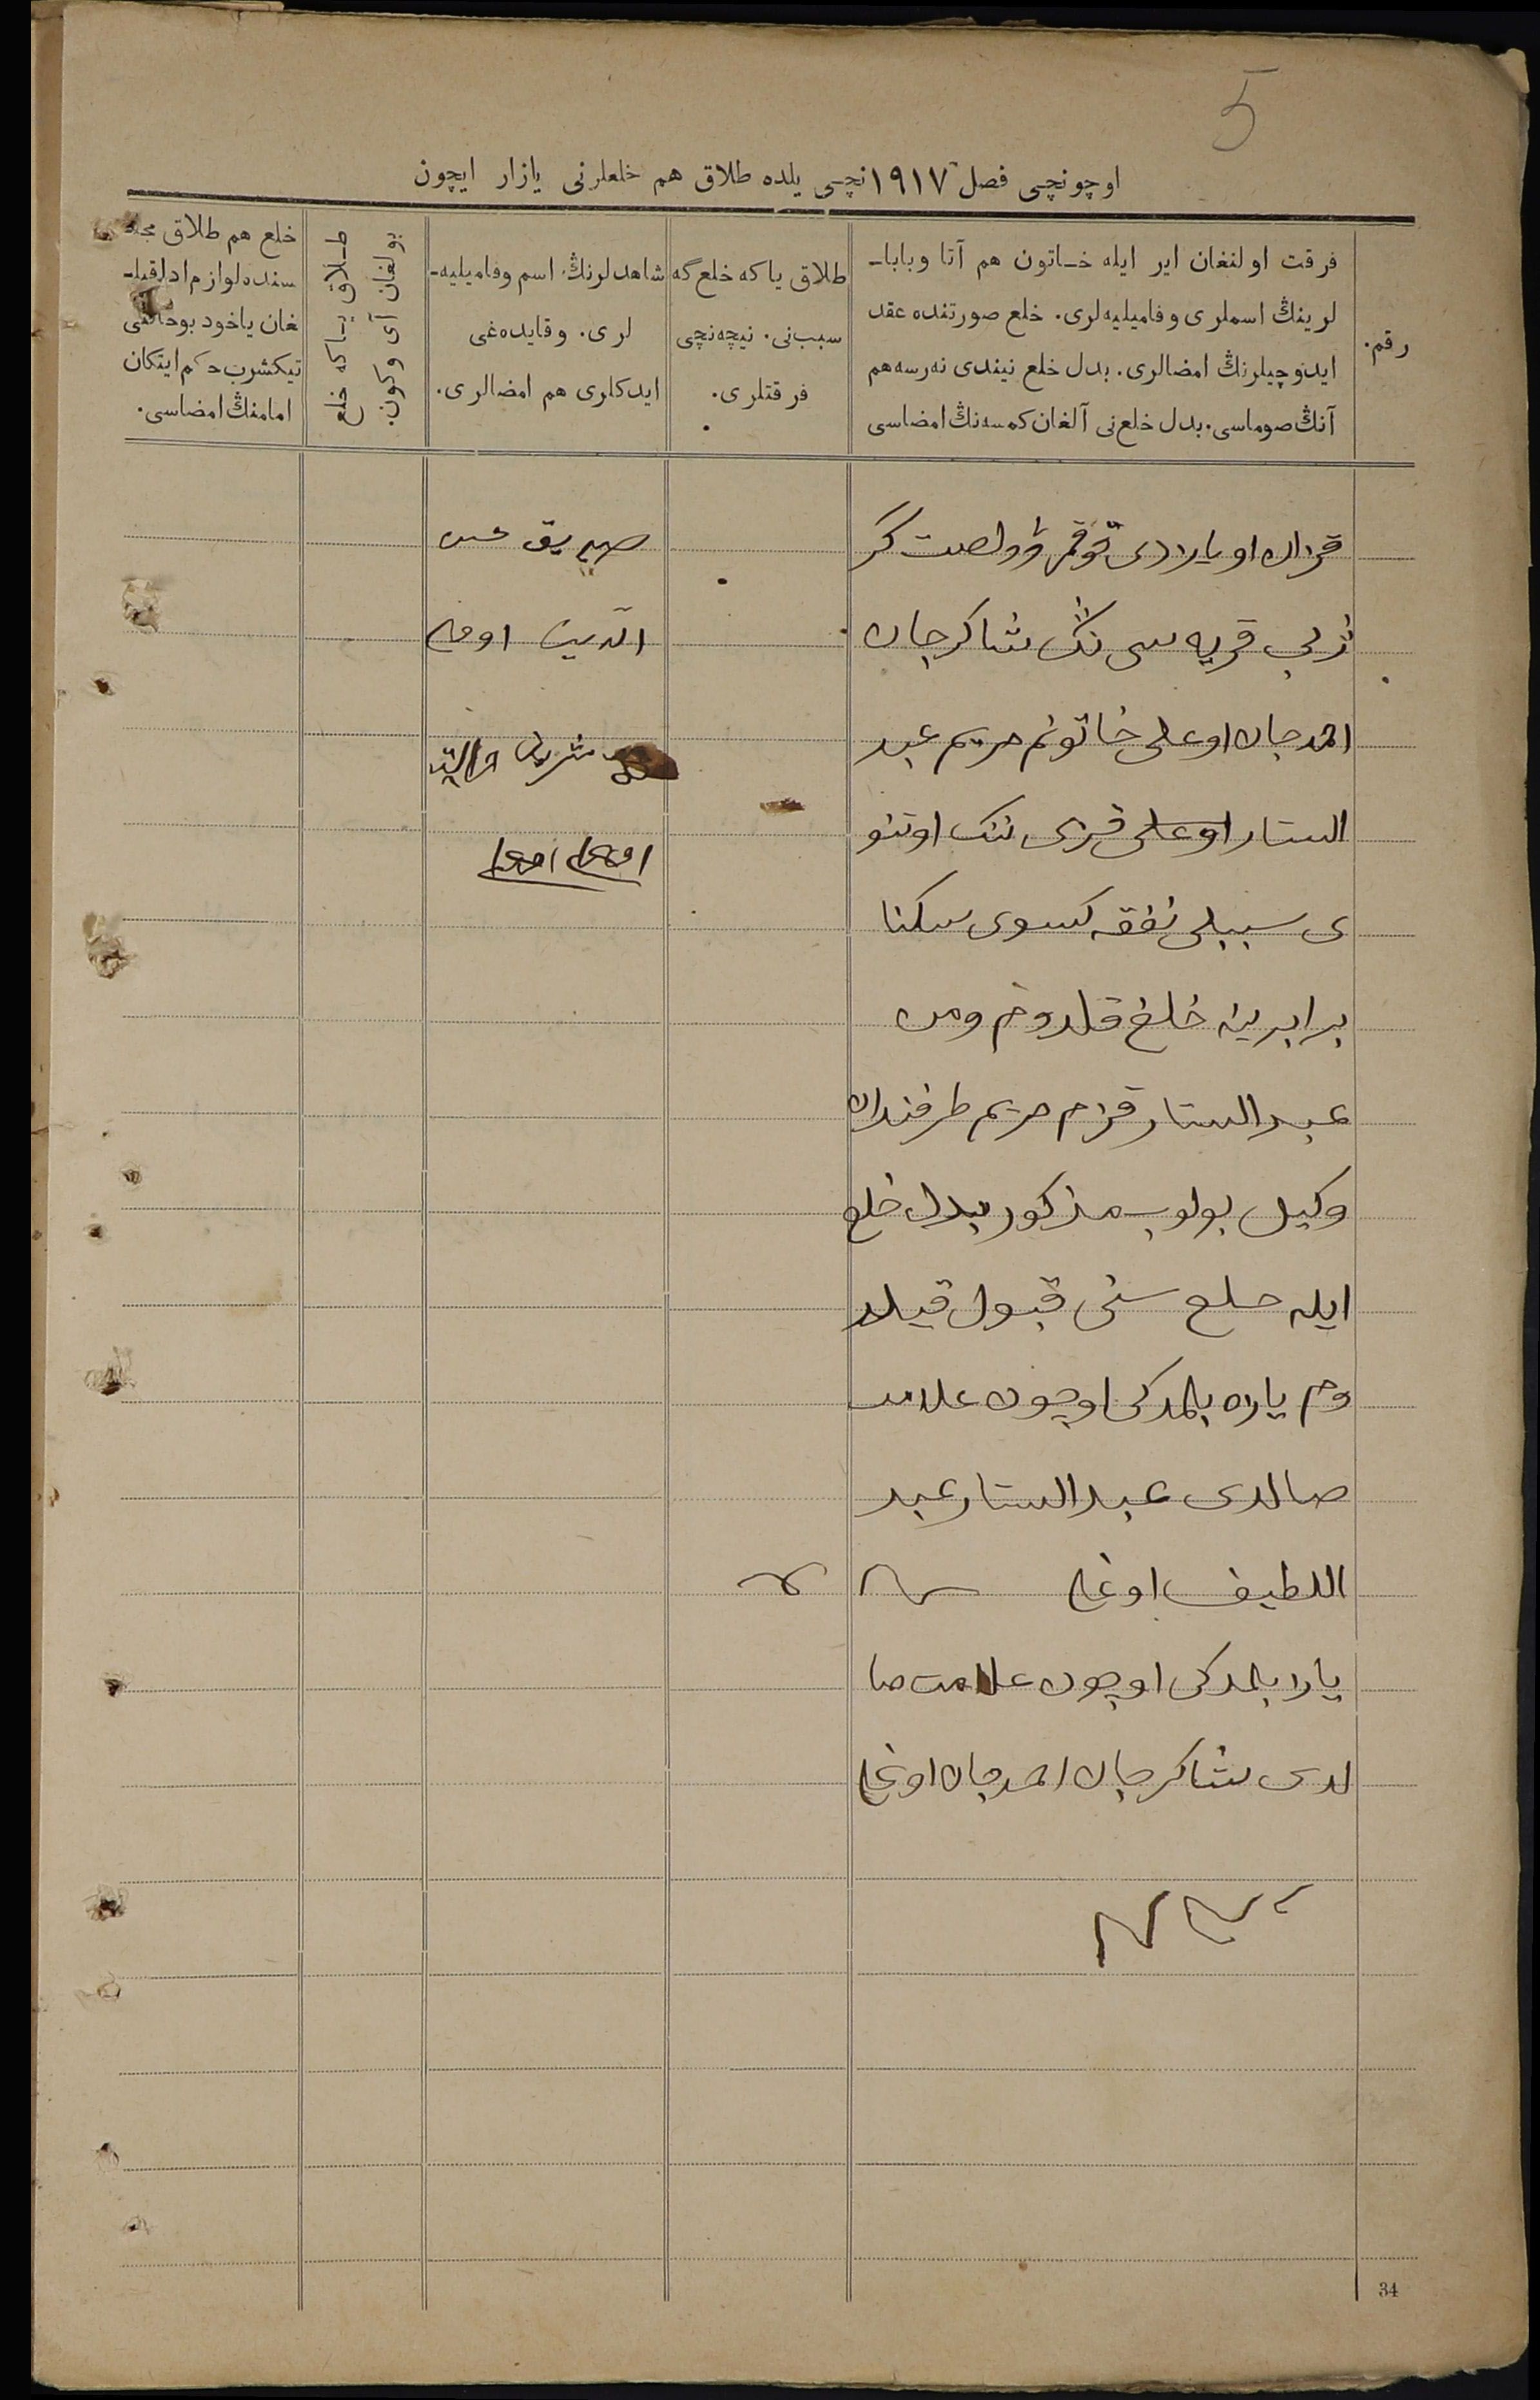 5
اوچونچی فصل ١٩١٧ نچی یلده طلاق هم خلعلرنی یازار ایچون
رقم.
فرقت اولنغان ایر ایله خاتون هم آتا وبابا-
لرینڭ اسملری وفامیلیه‌لری. خلع صورتنده عقد
ایدوچیلرنڭ امضالری. بدل خلع نیندی نه‌رسه هم
آنڭ صوماسی. بدل خلع‌نی آلغان کمسه‌نڭ امضاسی
طلاق یاکه خلع گه
سبب‌نی. نیچه‌نچی
فرقتلری.
شاهدلرنڭ اسم وفامیلیه-
لری. وقایده‌غی
ایدکلری هم امضالری.
طلاق یاکه خلع
بولغان آی وکون.
خلع هم طلاق مجلـ
سنده لوازم ادا قیلـ
غان یاخود بوحالنی
تیکشرب حکم ایتکان
امامنڭ امضاسی.
قزان اویازدی
قریه سی ننڭ شاکرجان
احمدجان اوعلی خاتونم مریم عبد
الستار اوعلی قزی ننک اوتنو
ی سببلی نفقه کسوی سکنا
برابرینه خلع قلدوم ومن
عبدالستار قزم مریم طرفندان
وکیل بولوب مذکور بدل خلع
ایله خلع سنی قبول قیلد
وم یازه بلمدکی اوچون علامت
صالدی عبدالستار عبد
اللطیف اوغلی
یازا بلمدکی اوچون علامت صا
لدی شاکرجان احمدجان اوغلی
صدیق
الدین اوغلی
34